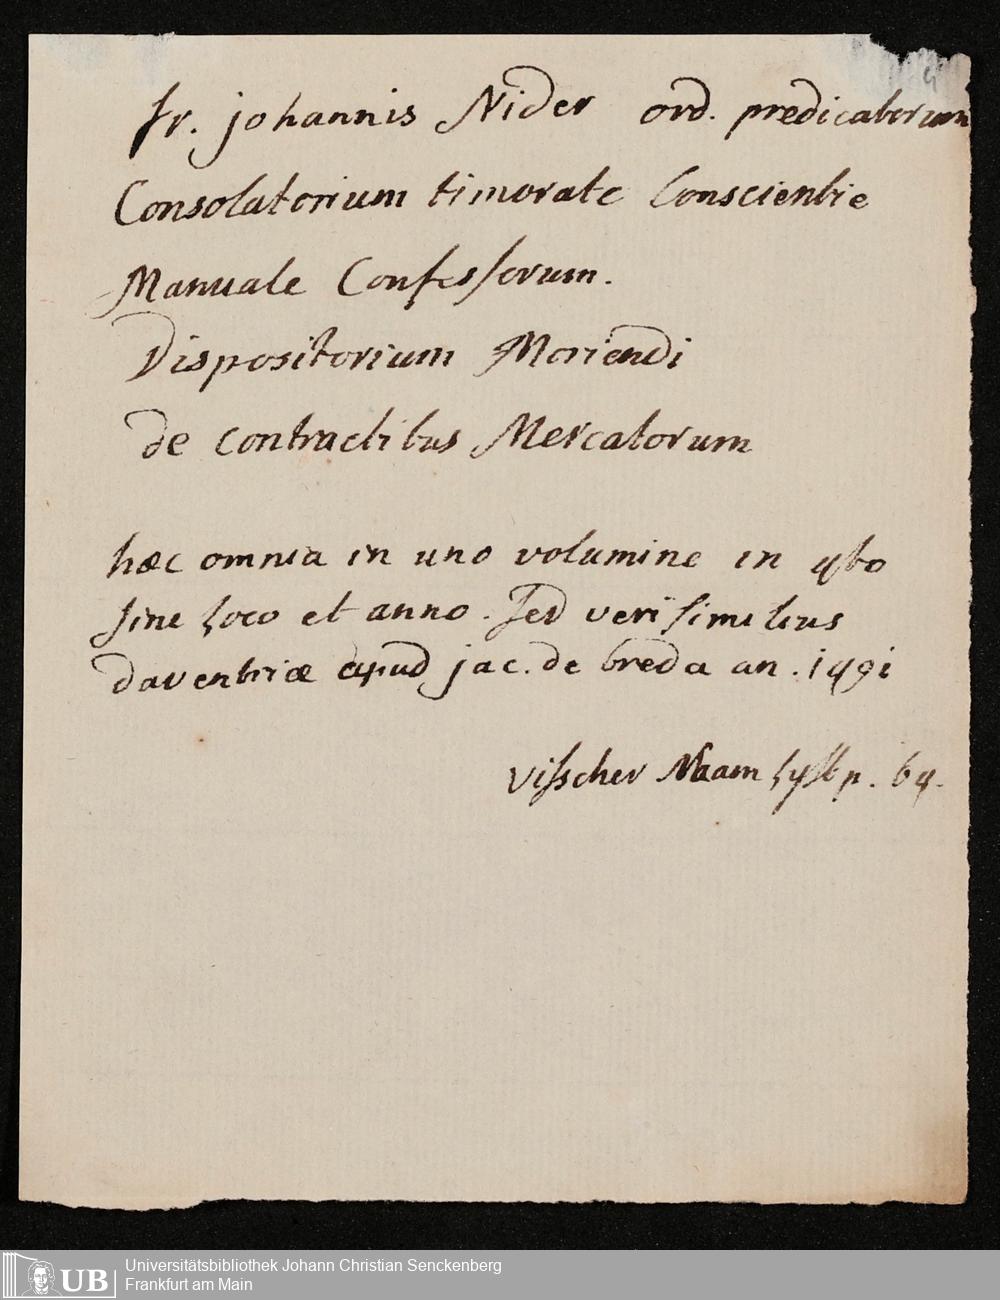 fr. johannis Nider ord. predicatorum
Consolatorium timorate Conscientie
Manuale Confessorum.
Dispositorium Moriendi
de contractibus Mercatorum
hæc omnia in uno volumine in 4to
sine loco et anno. sed verisimilius
daventriæ apud jac. de breda an. 1491
visscher Naam lyst p. 64.
UB
Universitätsbibliothek Johann Christian Senckenberg
Frankfurt am Main